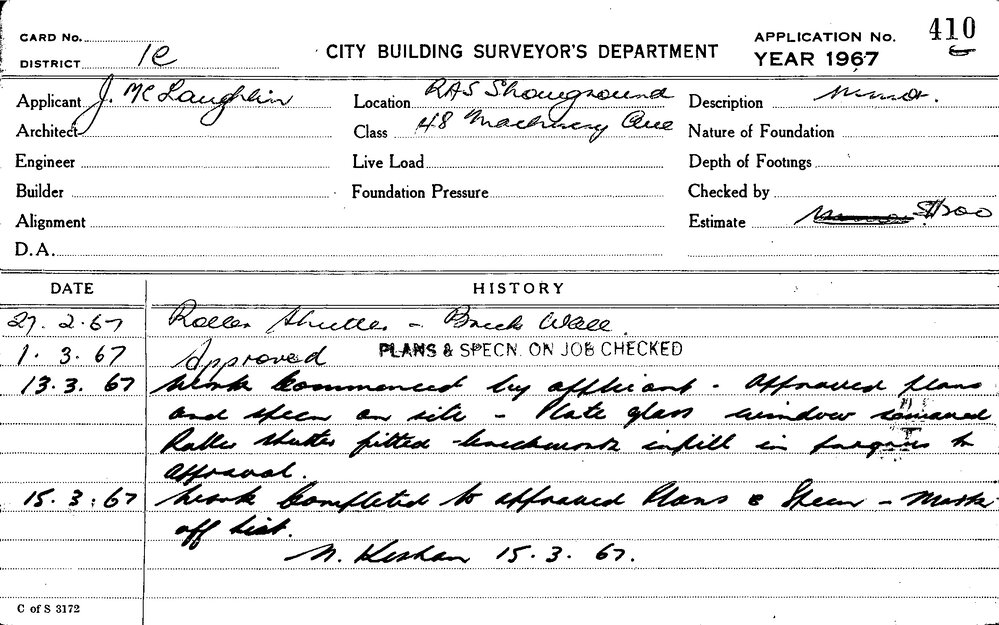 CARD No.
DISTRICT 1C
CITY BUILDING SURVEYOR'S DEPARTMENT
APPLICATION No. 410
YEAR 1967
Applicant J. McLaughlin
Location RAS Showground
Description Minor.
Architect
Class 48 Machinery Ave
Nature of Foundation
Engineer
Live Load
Depth of Footings
Builder
Foundation Pressure
Checked by
Alignment
Estimate $1200
D.A.
DATE HISTORY
27.2.67 Roller Shutter - Brick Wall.
1.3.67 Approved PLANS & SPECN. ON JOB CHECKED
13.3.67 Work Commenced by applicant - Approved plans
and specn on site - Plate glass window removed
Roller shutter fitted - brickwork infill in progress to
approval.
15.3.67 Work Completed to approved Plans & Specn - Mark
off list.
15.3.67.
C of S 3172